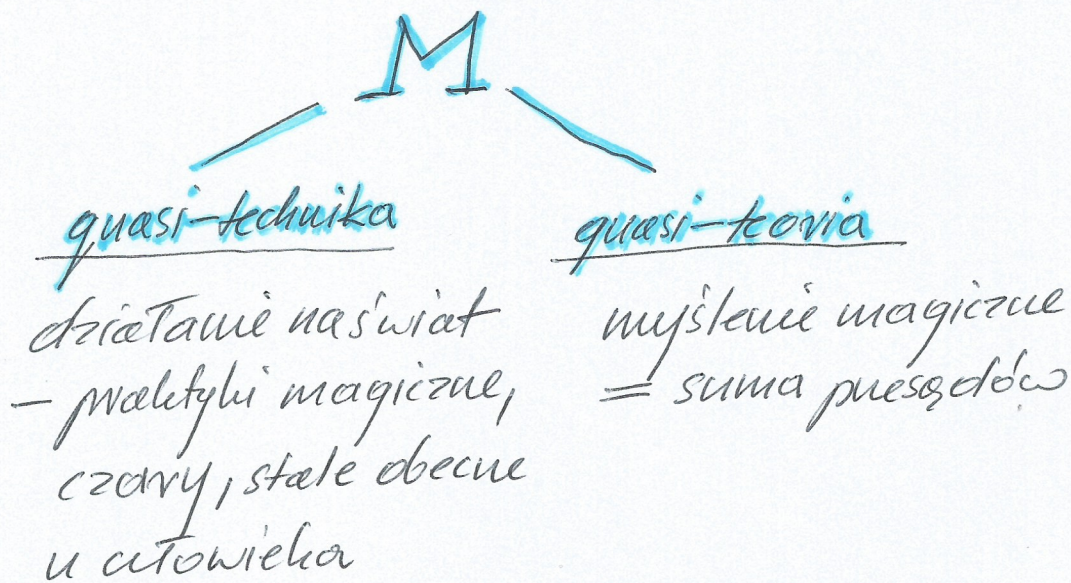 M
quasi-technika
działanie na świat
– praktyki magiczne,
czary, stale obecne
u człowieka
quasi-teoria
myślenie magiczne
= suma przesądów